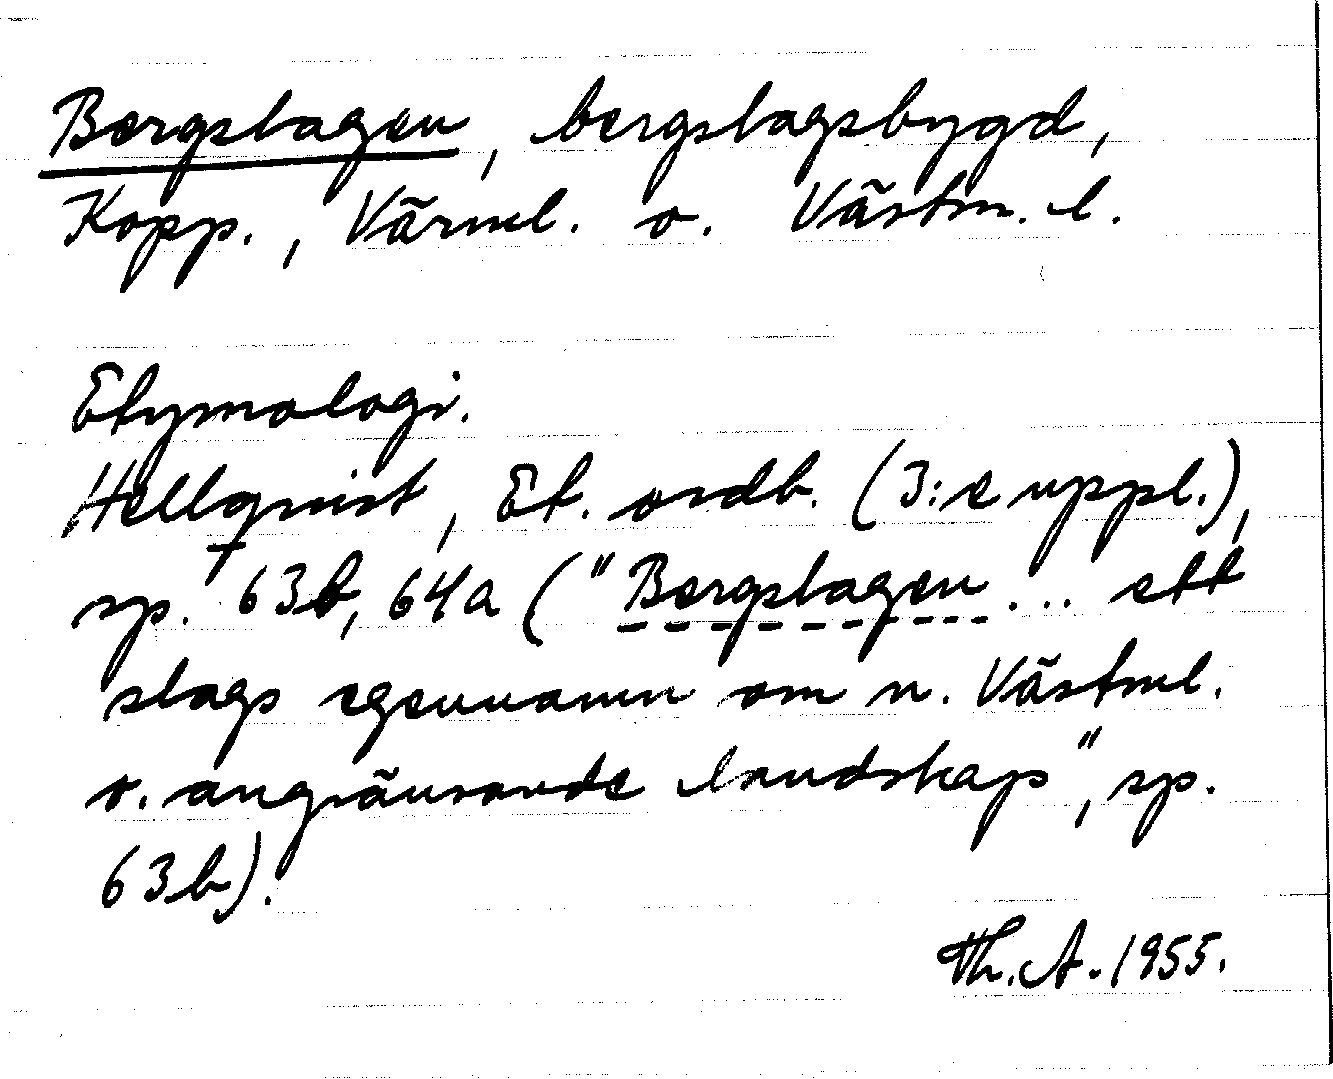 Bergslagen, bergslagsbygd,
Kopp., Värml. o. Västm. l.
Etymologi.
Hellqvist, Et. ordb. (3:e uppl.),
sp. 63b, 64a ("Bergslagen... ett
slags egennamn om n. Västml.
o. angränsande landskap", sp.
63b).
Th. A. 1955.